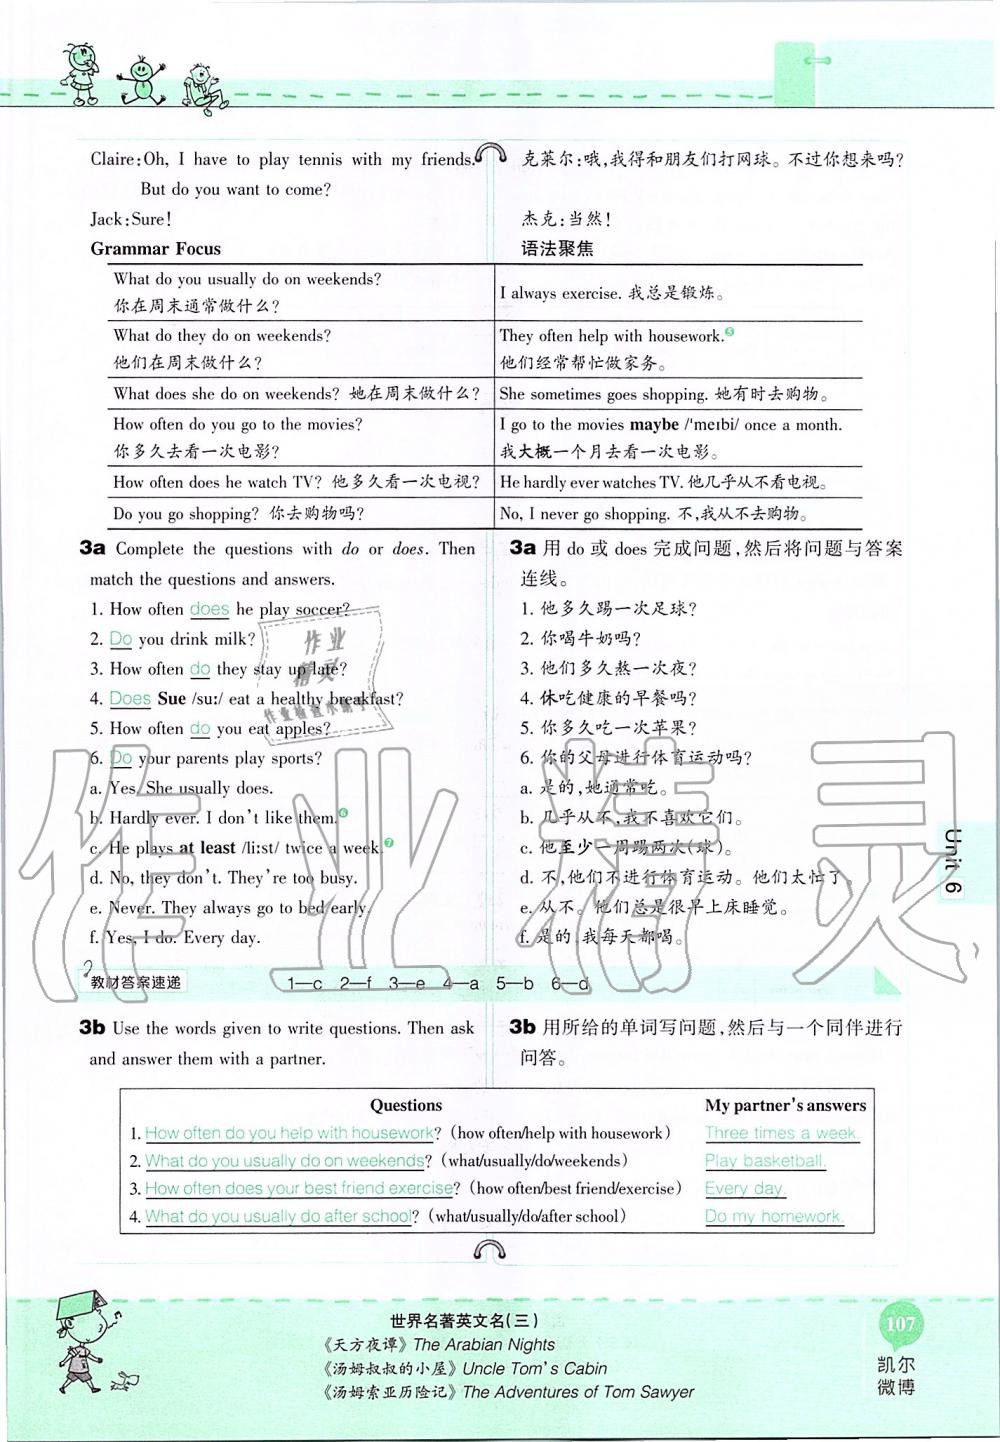 Claire:Oh, I have to play tennis with my friends.
But do you want to come?
Jack:Sure!
克莱尔:哦,我得和朋友们打网球。不过你想来吗?
杰克:当然!
Grammar Focus
语法聚焦
What do you usually do on weekends?
你在周末通常做什么?
I always exercise. 我总是锻炼。
What do they do on weekends?
他们在周末做什么?
They often help with housework.❺
他们经常帮忙做家务。
What does she do on weekends? 她在周末做什么?
She sometimes goes shopping. 她有时去购物。
How often do you go to the movies?
你多久去看一次电影?
I go to the movies maybe /'meɪbi/ once a month.
我大概一个月去看一次电影。
How often does he watch TV? 他多久看一次电视?
He hardly ever watches TV. 他几乎从不看电视。
Do you go shopping? 你去购物吗?
No, I never go shopping. 不,我从不去购物。
3a Complete the questions with do or does. Then
match the questions and answers.
1. How often does he play soccer?
2. Do you drink milk?
3. How often do they stay up late?
4. Does Sue /su:/ eat a healthy breakfast?
5. How often do you eat apples?
6. Do your parents play sports?
a. Yes. She usually does.
b. Hardly ever. I don't like them.❻
c. He plays at least /li:st/ twice a week.❼
d. No, they don't. They're too busy.
e. Never. They always go to bed early.
f. Yes, I do. Every day.
3a 用 do 或 does 完成问题,然后将问题与答案
连线。
1. 他多久踢一次足球?
2. 你喝牛奶吗?
3. 他们多久熬一次夜?
4. 休吃健康的早餐吗?
5. 你多久吃一次苹果?
6. 你的父母进行体育运动吗?
a. 是的,她通常吃。
b. 几乎从不,我不喜欢它们。
c. 他至少一周踢两次(球)。
d. 不,他们不进行体育运动。他们太忙了。
e. 从不。他们总是很早上床睡觉。
f. 是的,我每天都喝。
教材答案速递
1—c 2—f 3—e 4—a 5—b 6—d
3b Use the words given to write questions. Then ask
and answer them with a partner.
3b 用所给的单词写问题,然后与一个同伴进行
问答。
Questions My partner's answers
1. How often do you help with housework? (how often/help with housework) Three times a week.
2. What do you usually do on weekends? (what/usually/do/weekends) Play basketball.
3. How often does your best friend exercise? (how often/best friend/exercise) Every day.
4. What do you usually do after school? (what/usually/do/after school) Do my homework.
Unit 6
世界名著英文名(三)
《天方夜谭》The Arabian Nights
《汤姆叔叔的小屋》Uncle Tom's Cabin
《汤姆索亚历险记》The Adventures of Tom Sawyer
107
凯尔
微博
作业
精灵
作业精灵